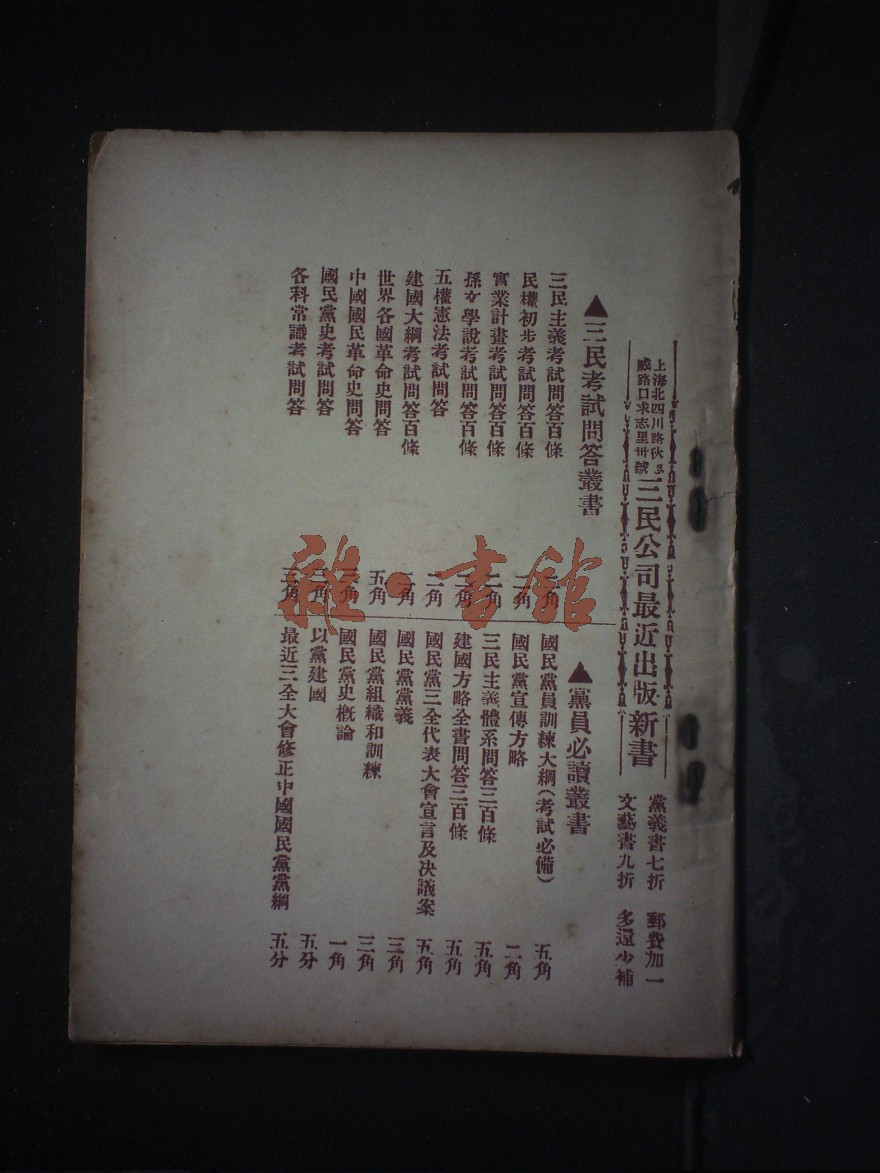 上海北四川路狄思
威路口求志里卅號
三民公司最近出版新書
黨義書七折 郵費加一
文藝書九折 多還少補
▲三民考試問答叢書
三民主義考試問答百條 二角
民權初步考試問答百條 二角
實業計畫考試問答百條 二角
孫文學說考試問答百條 二角
五權憲法考試問答 二角
建國大綱考試問答百條 二角
世界各國革命史問答 五角
中國國民革命史問答 三角
國民黨史考試問答 二角
各科常識考試問答 三角
▲黨員必讀叢書
國民黨員訓練大綱(考試必備) 五角
國民黨宣傳方略 二角
三民主義體系問答三百條 五角
建國方略全書問答三百條 五角
國民黨三全代表大會宣言及決議案 五角
國民黨黨義 三角
國民黨組織和訓練 三角
國民黨史概論 一角
以黨建國 五分
最近三全大會修正中國國民黨黨綱 五分
雜·書館